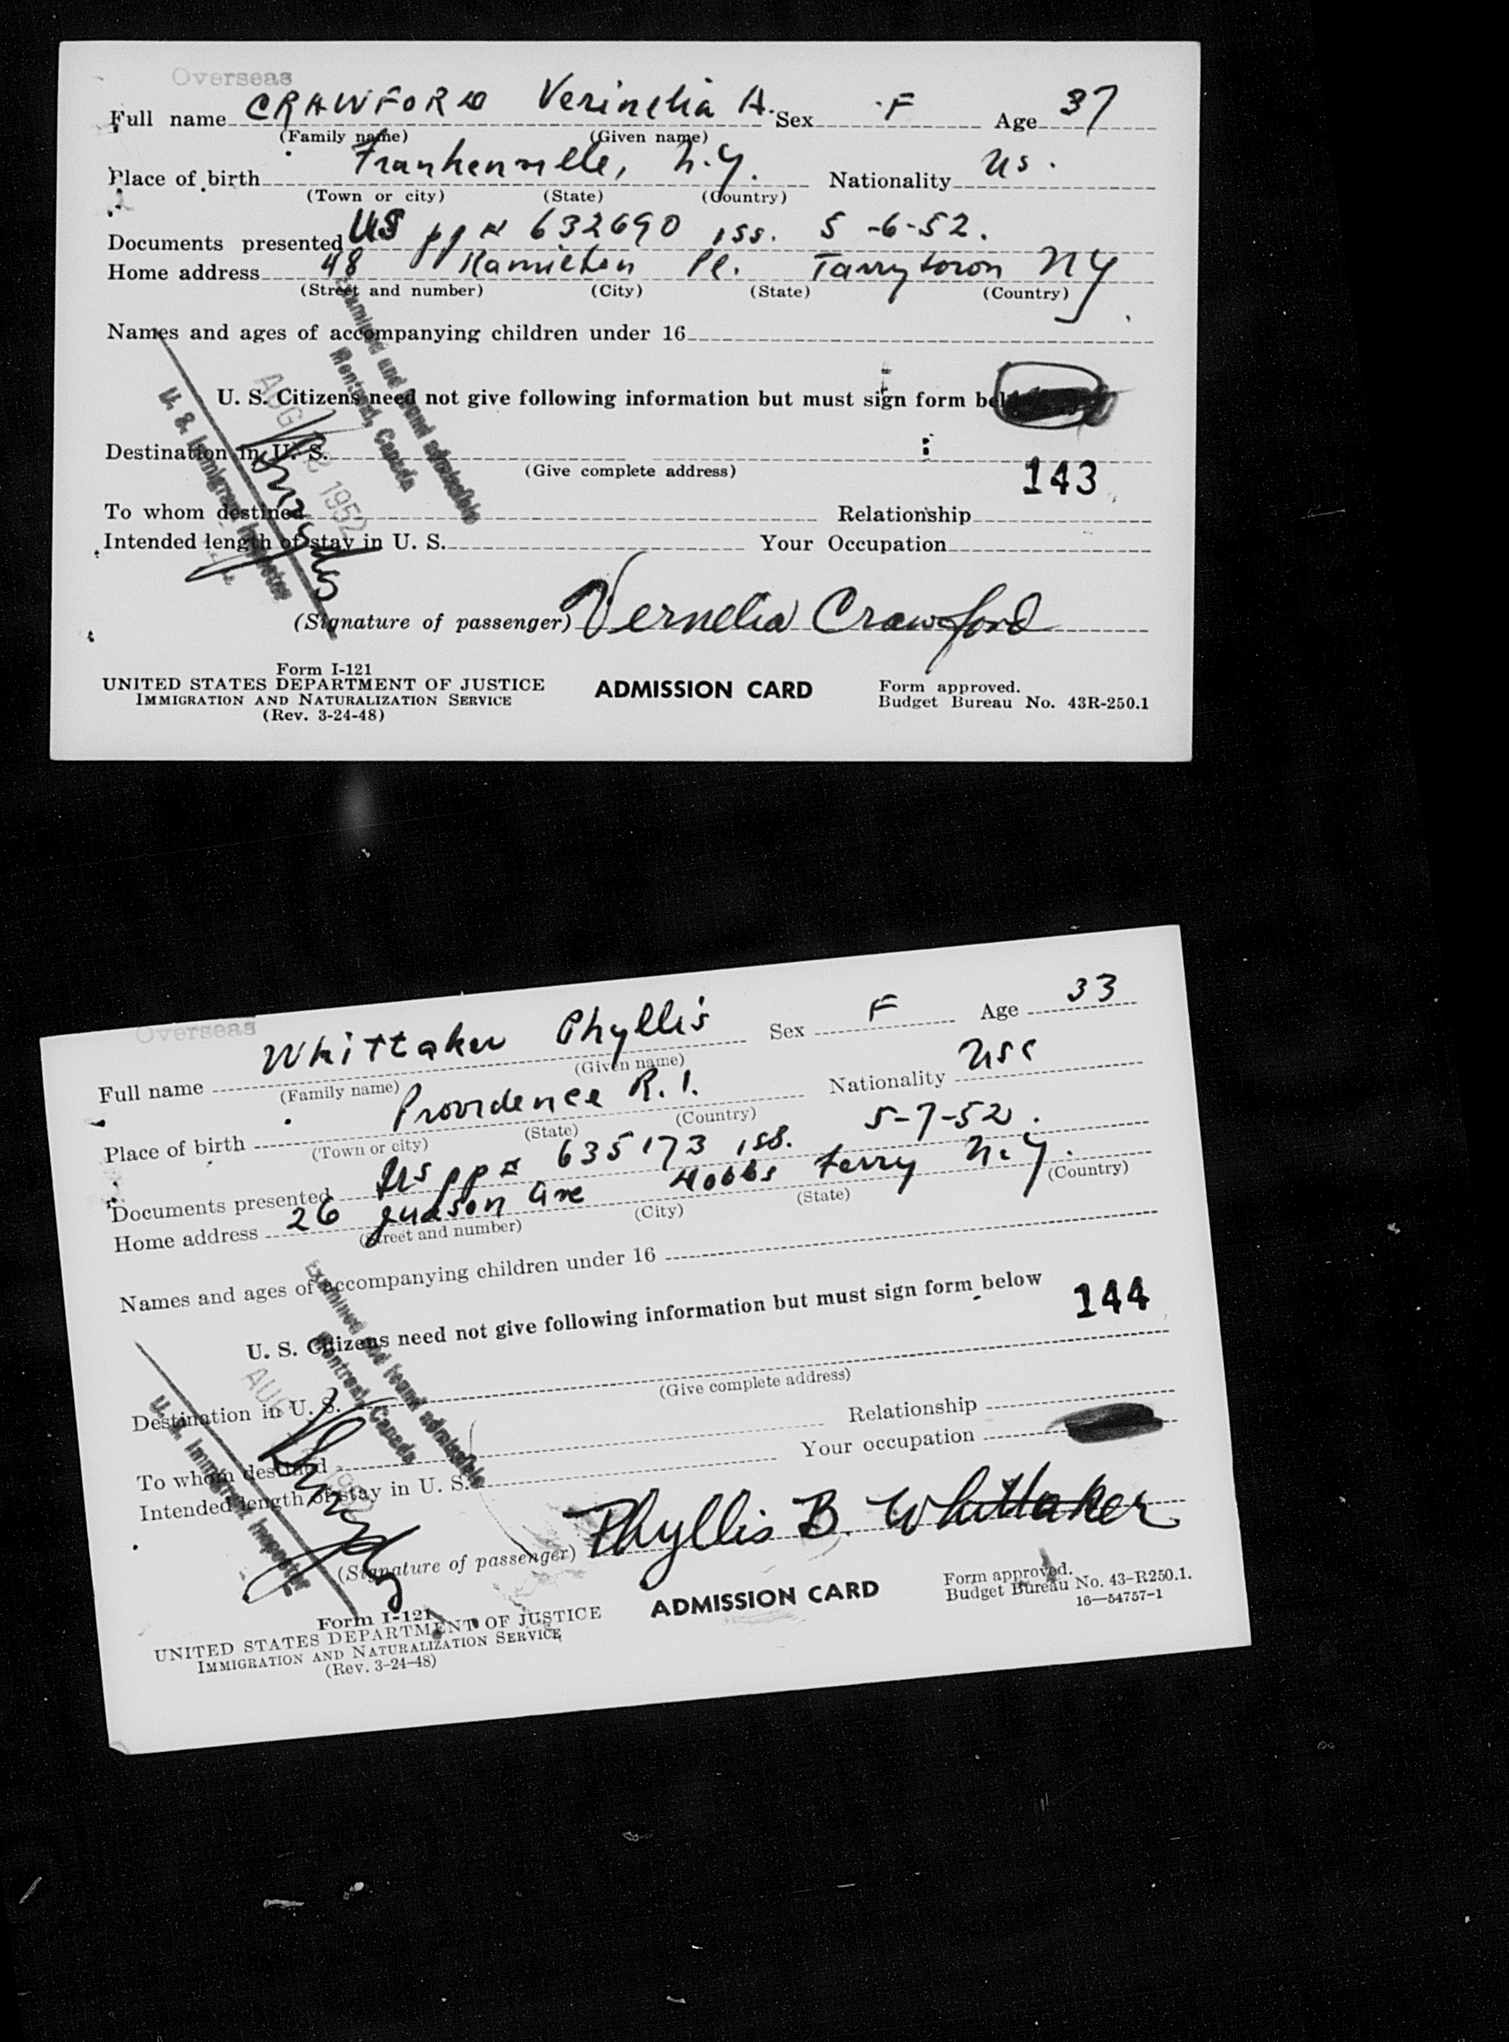 Overseas
Full name CRAWFORD Verinelia A. Sex F Age 37
(Family name) (Given name)
Place of birth N.Y. Nationality US.
(Town or city) (State) (Country)
Documents presented US pp # 632690 iss. 5-6-52.
Home address 48 Hamilton Pl. Tarrytown NY
(Street and number) (City) (State) (Country)
Names and ages of accompanying children under 16
U. S. Citizens need not give following information but must sign form below
Destination in U. S.
(Give complete address)
143
To whom destined Relationship
Intended length of stay in U. S. Your Occupation
(Signature of passenger) Vernelia Crawford
Examined and found admissible
Montreal, Canada
AUG 1952
U. S. Immigrant Inspector
Form I-121
UNITED STATES DEPARTMENT OF JUSTICE
IMMIGRATION AND NATURALIZATION SERVICE
(Rev. 3-24-48)
ADMISSION CARD
Form approved.
Budget Bureau No. 43R-250.1
Overseas
Full name Whittaker Phyllis Sex F Age 33
(Family name) (Given name)
Place of birth Providence R.I. Nationality USC
(Town or city) (State) (Country)
Documents presented US pp # 635173 iss. 5-7-52.
Home address 26 Judson Ave Hobbs Ferry N.Y.
(Street and number) (City) (State) (Country)
Names and ages of accompanying children under 16
U. S. Citizens need not give following information but must sign form below
144
Destination in U. S.
(Give complete address)
To whom destined Relationship
Intended length of stay in U. S. Your occupation
(Signature of passenger) Phyllis B. Whittaker
Examined and found admissible
Montreal, Canada
AUG 195
U. S. Immigrant Inspector
Form I-121
UNITED STATES DEPARTMENT OF JUSTICE
IMMIGRATION AND NATURALIZATION SERVICE
(Rev. 3-24-48)
ADMISSION CARD
Form approved.
Budget Bureau No. 43-R250.1.
16—54757-1